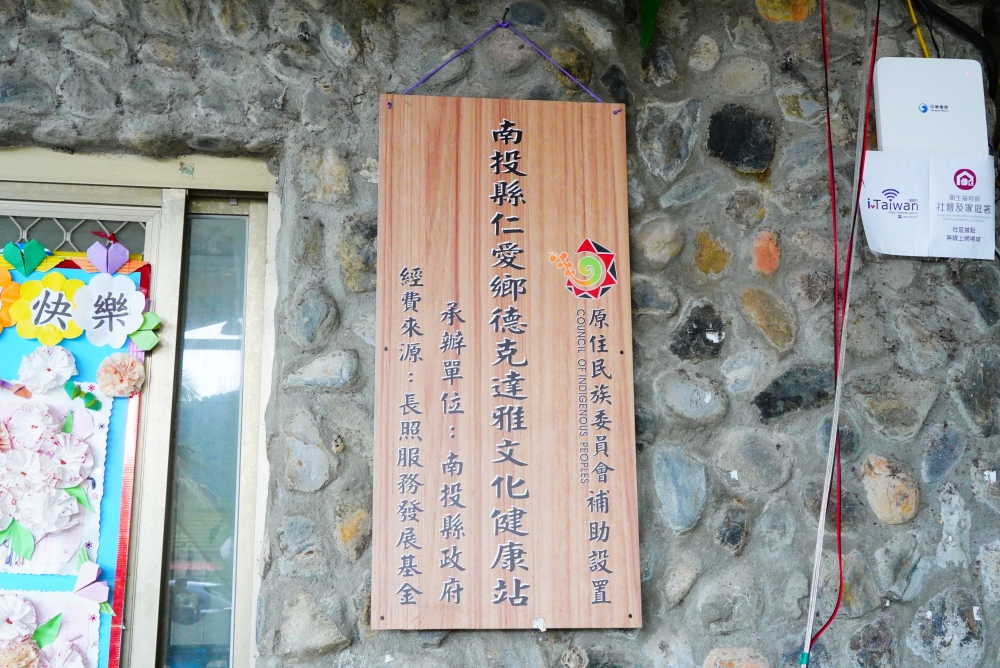 原住民族委員會補助設置
COUNCIL OF INDIGENOUS PEOPLES
南投縣仁愛鄉德克達雅文化健康站
承辦單位：南投縣政府
經費來源：長照服務發展基金
快樂
中華電信
iTaiwan
衛生福利部
社會及家庭署
社區據點
無線上網場域